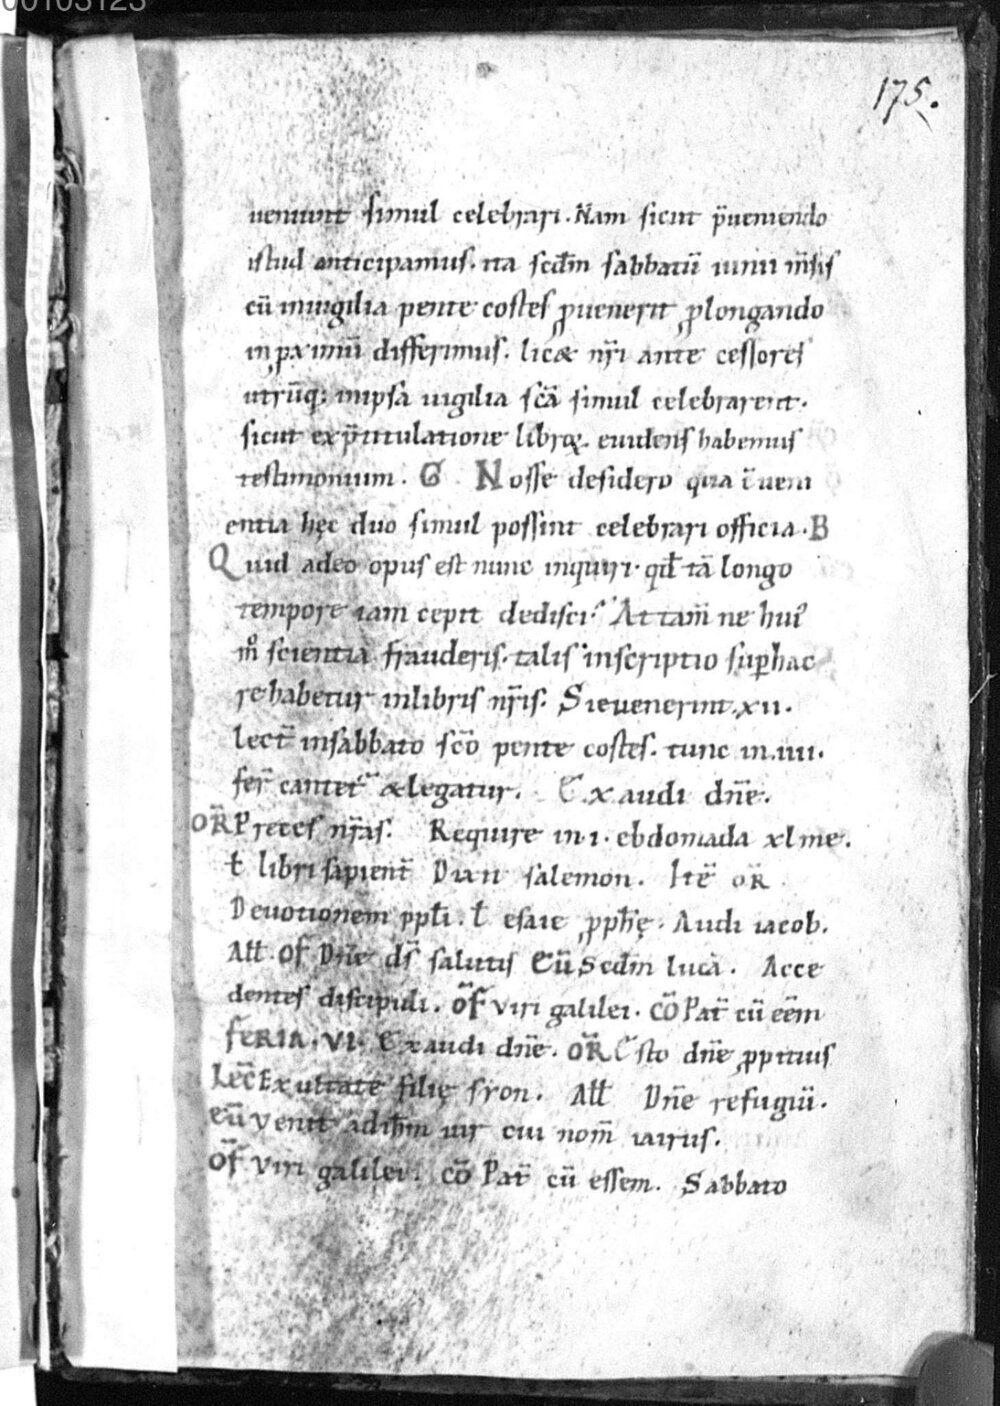 00103123
175.
ueniunt simul celebrari. Nam sicut p̄ueniendo
istud anticipamus. ita scd̄m sabbatū iunii m̄sis
cū inuigilia pente costes p̱uenerit p̱longando
in p̱ximū differimus. licæ nr̄i ante cessores
utrūq; inipsa uigilia sc̄a simul celebrarent.
sicut exp̄titulatione libroꝝ. euidens habemus
testimonium. G Nosse desidero qua
entia hęc duo simul possint celebrari officia. B
Quid adeo opus est nunc inquiri. qd̄ tā longo
tempore iam cepit dedisci? Attam̄ ne hui'
m̊ scientia frauderis. talis inscriptio sup hac
re habetur inlibris nr̄is. Si euenerint .xii.
lect̄ insabbato sc̄o pente costes. tunc in .iiii.
fer̄ cantet̄ & legatur. Exaudi dn̄e.
OR̄ Preces nr̄as. Require in .i. ebdomada xlme.
ł libri sapient̄ Dixit salemon. Itē OR̄
Deuotionem ppłi. ł esaie p̱ph̄ę. Audi iacob.
Ałł. Of Dn̄e ds̄ salutis Eū Scd̄m lucā. Acce
dentes discipuli. Of̄ viri galilei. Cō Pat̄ cū eēm
FERIA .VI. Exaudi dn̄e. OR̄ Esto dn̄e p̱pitius
Lec̄ Exultate filię syon. Ałł Dn̄e refugiū.
Eū Venit adih̄m uir cui nom̄ iairus.
Of̄ Viri galilei. Cō Pat̄ cū essem. Sabbato